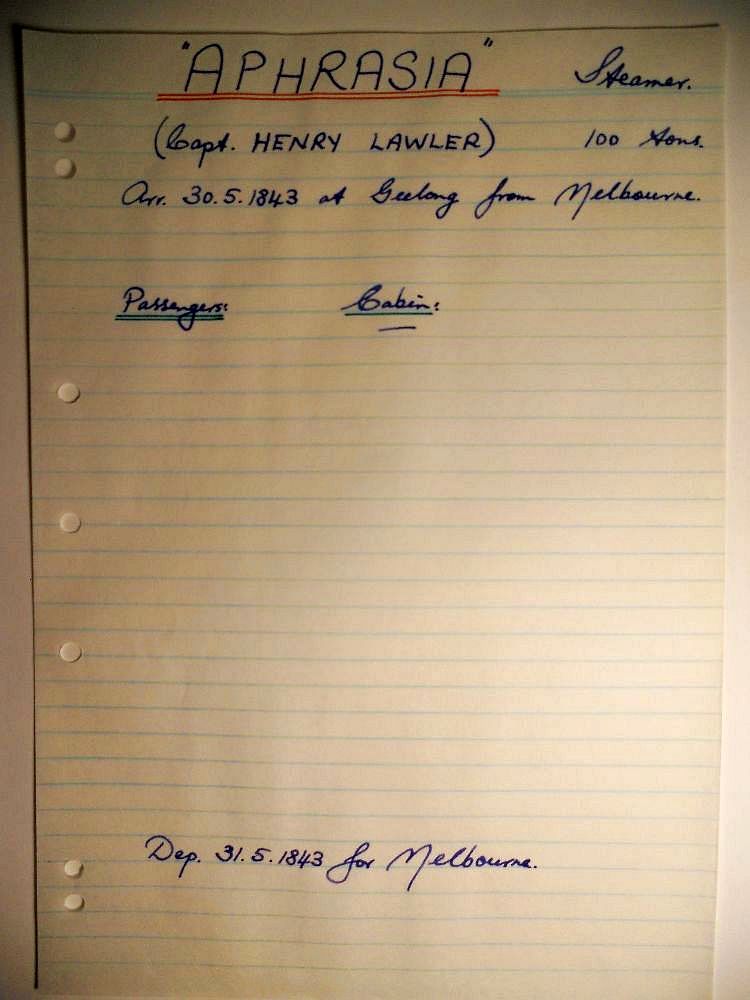 "APHRASIA" Steamer.
(Capt. HENRY LAWLER) 100 tons.
Arr. 30.5.1843 at Geelong from Melbourne.
Passengers: Cabin:
—
Dep. 31.5.1843 for Melbourne.